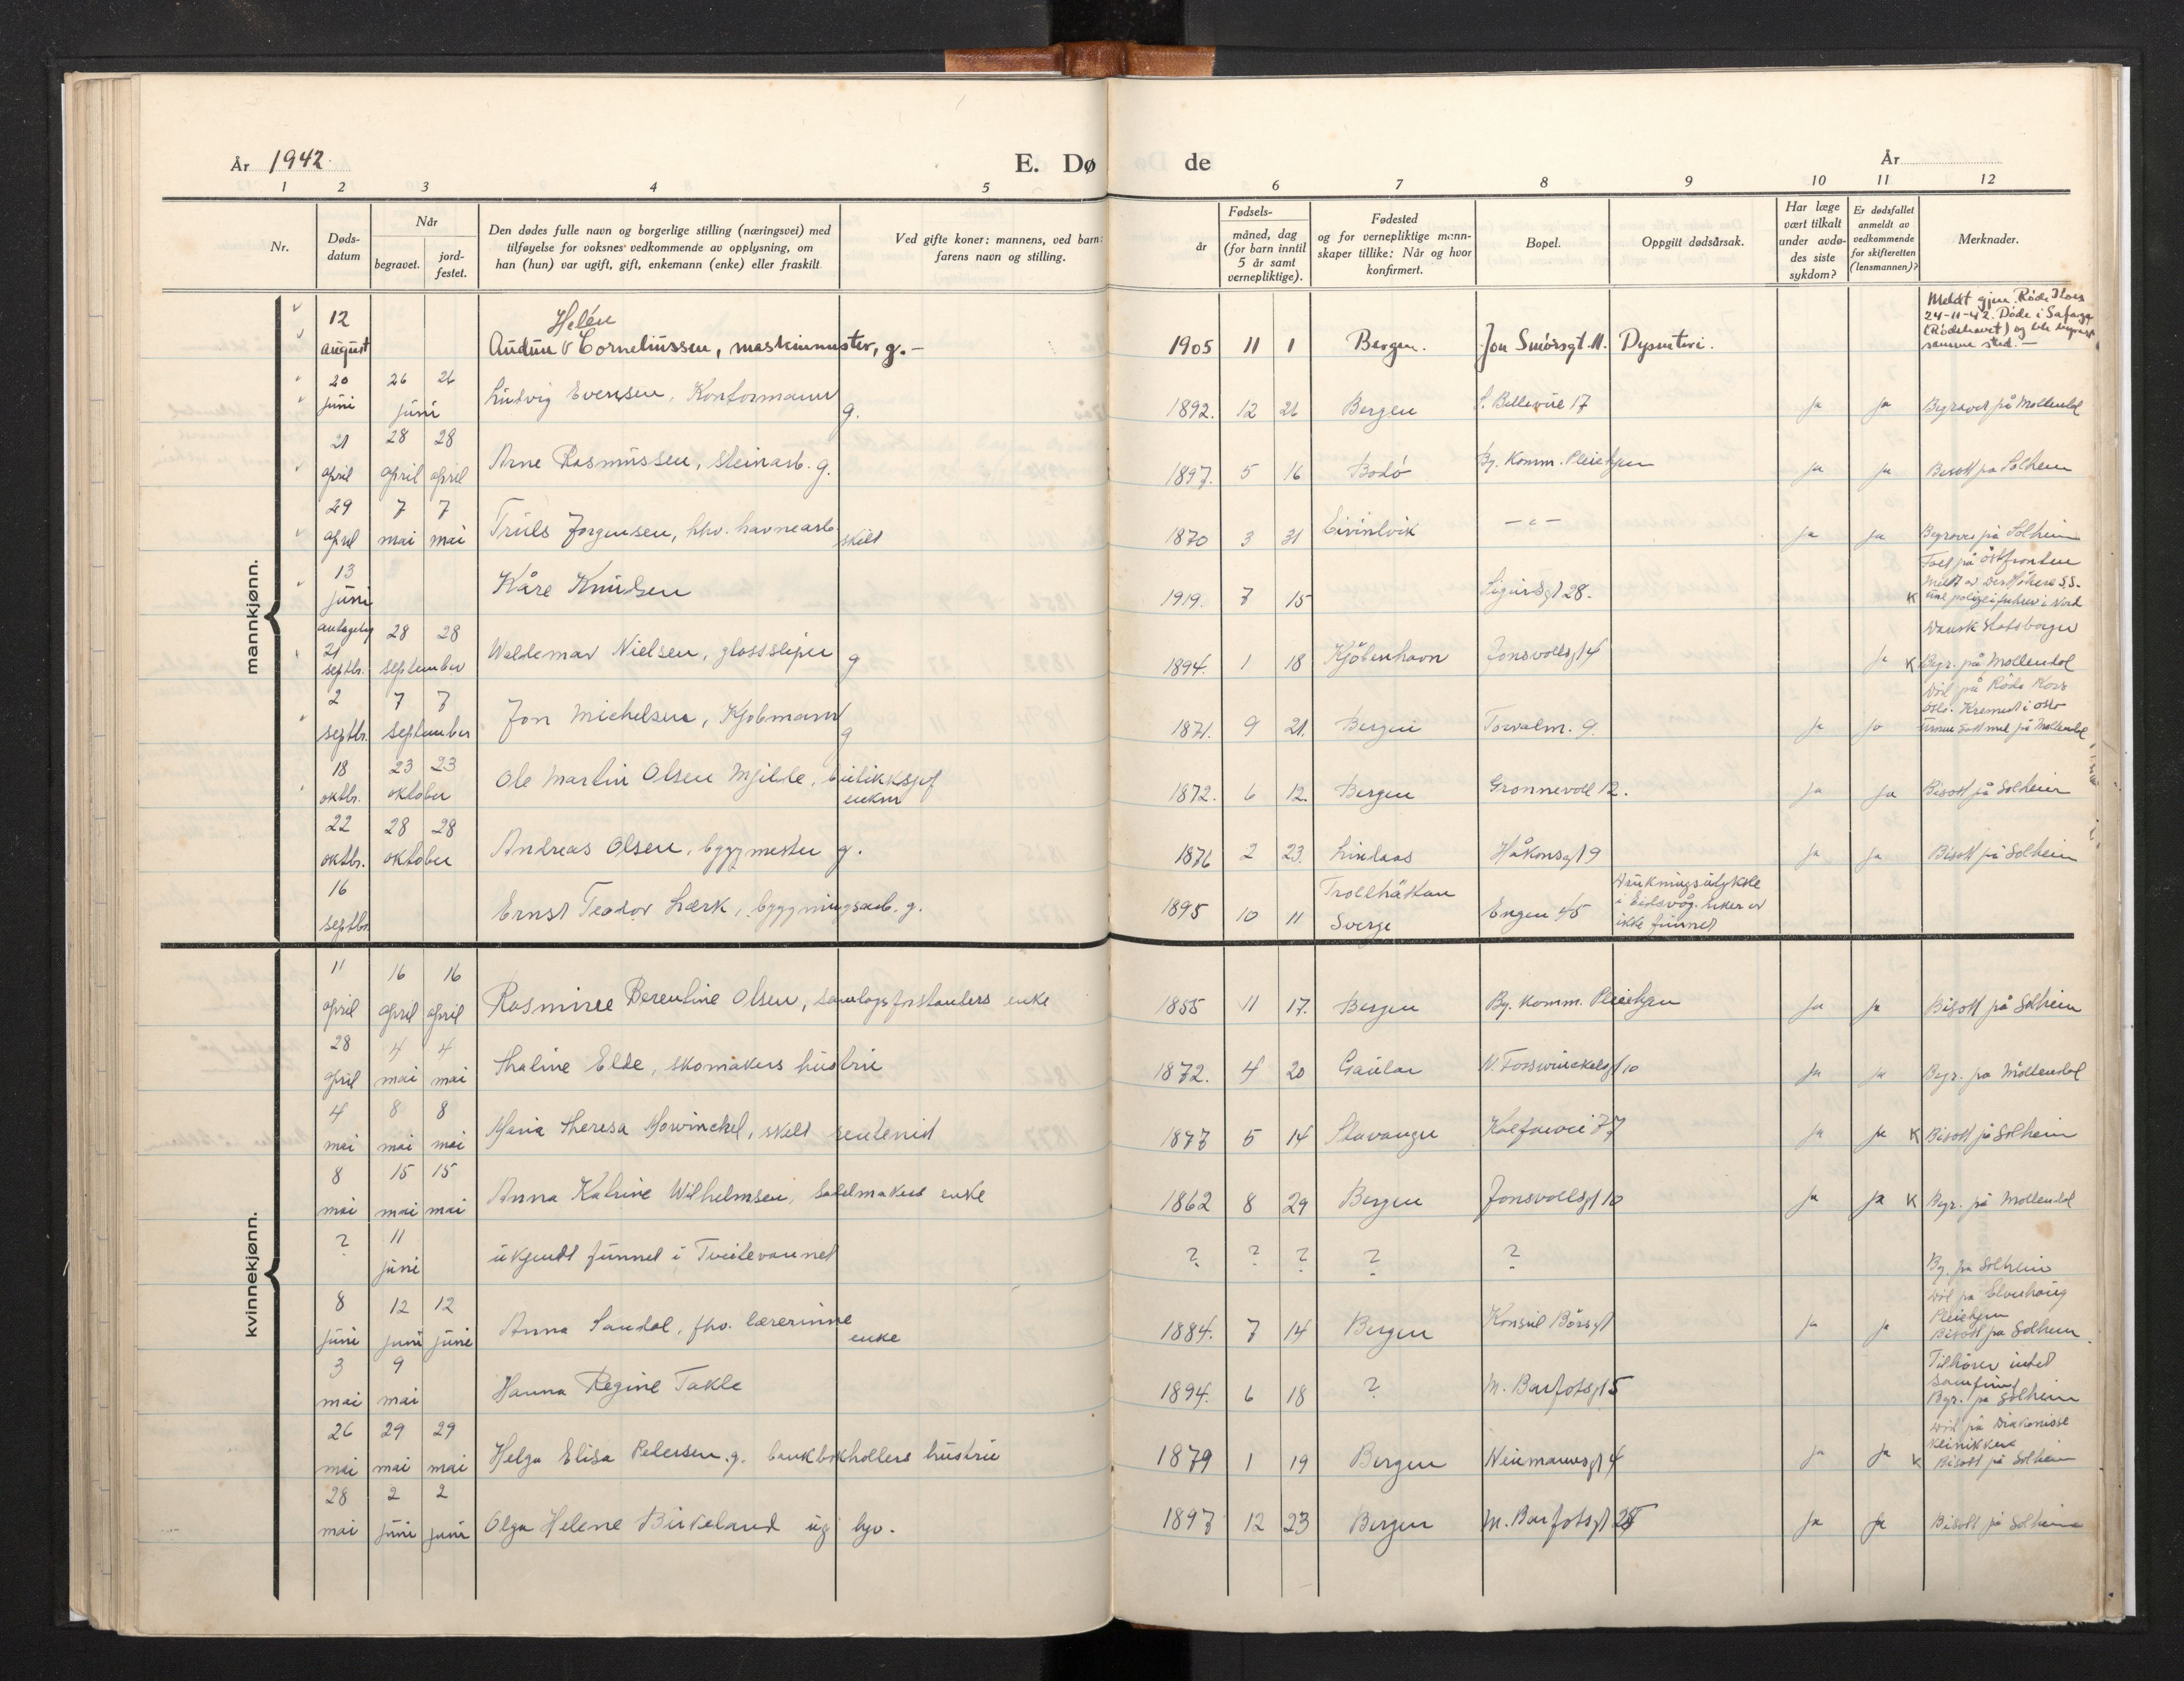 År 1942. E. Dø de År
1 2 3 4 5 6 7 8 9 10 11 12
Nr.
Døds-
datum
Når
begravet.
jord-
festet.
Den dødes fulle navn og borgerlige stilling (næringsvei) med
tilføyelse for voksnes vedkommende av opplysning, om
han (hun) var ugift, gift, enkemann (enke) eller fraskilt
Ved gifte koner: mannens, ved barn:
farens navn og stilling.
Fødsels-
år
måned, dag
(for barn inntil
5 år samt
vernepliktige).
Fødested
og for vernepliktige mann-
skaper tillike: Når og hvor
konfirmert.
Bopel.
Oppgitt dødsårsak.
Har læge
vært tilkalt
under avdø-
des siste
sykdom?
Er dødsfallet
anmeldt av
vedkommende
for skifteretten
(lensmannen)?
Merknader.
mannkjønn.
12 august Helén
Audun v Corneliussen, maskinmester, g. – 1905 11 1 Bergen. Jon Smørsgt. 11. Dysenteri. Meldt gjen. Røde Kors
24-11-42. Døde i Safaga
(Rødehavet) og ble begravet
samme sted. –
20 juni 26 26 juni Ludvig Evensen, Kontormann g. 1892. 12 26 Bergen S. Bellevue 17 Ja Ja Begravet på Møllendal
21 april 28 april 28 april Arne Rasmussen, steinarb. g. 1897. 5 16 Bodö By. Komm. Pleiehjem Ja Ja Bisatt på Solheim
29 april 7 mai 7 mai Truls Jørgensen, fhv. havnearb. skilt 1870 3 31 Eivindvik — " — Ja Ja Begravet på Solheim
13 juni Kåre Knudsen 1919. 7 15 Sigurdsgt 28. K Falt på östfronten
Meldt av Der Höhere SS-
und polizeifuhrer i Nord
antagelig
21 septbr. 28 28 september Waldemar Nielsen, glassliper g 1894. 1 18 Kjöbenhavn Jonsvollsgt 4 Ja K Dansk statsborger
Begr. på Møllendal
2 septbr. 7 7 september Jon Michelsen, Kjøbmann g 1871. 9 21. Bergen Torvalm. 9. Ja Ja Död på Röde Kors
Oslo. Kremert i Oslo
Urnen satt ned på Møllendal
18 oktbr. 23 23 oktober Ole Martin Olsen Mjelde, butikksjef
enkm 1872. 6 12. Bergen Grønnevoll 12. Ja Ja Bisatt på Solheim
22 oktbr. 28 28 oktober Andreas Olsen, byggmester g. 1876 2 23. Lindaas Håkonsgt 9 Ja Ja Bisatt på Solheim
16 septbr. Ernst Teodor Lærk, bygningsarb. g. 1895 10 11 Trollhättan
Sverge Engen 45 Drukningsulykke
i Eidsvåg. Liket er
ikke funnet
kvinnekjønn.
11 april 16 april 16 april Rasmine Berentine Olsen, samlagsfrstanders enke 1855 11 17. Bergen By. Komm. Pleiehjem Ja Ja Bisatt på Solheim
28 april 4 mai 4 mai Thaline Elde, skomakers hustru 1872. 4 20 Gaular V. Torswinckelsgt 10 Ja Ja Begr. på Møllendal
4 mai 8 mai 8 mai Maria Theresa Mowinckel, skilt 1877 5 14 Stavanger Kalfarvei 77 Ja Ja K Bisatt på Solheim
8 mai 15 mai 15 mai Anna Katrine Wilhelmsen, salelmakers enke 1862 8 29 Bergen Jonsvollsgt 10 Ja Ja K Begr. på Møllendal
? 11 juni ukjendt funnet i Tveitevannet ? ? ? ? ? By. på Solheim
8 juni 12 juni 12 juni Anna Sandal, fhv. lærerinne
enke 1884. 7 14 Bergen Konsul Börsgt Ja Ja Död på Elvehaug
Pleiehjem
Bisatt på Solheim.
3 mai 9 mai Hanna Regine Takle 1894. 6 18 ? M. Barfotsgt 5 Tilhörer intet
samfund
Begr. på Solheim
26 mai 29 mai 29 mai Helga Elisa Petersen. g. bankbokholders hustru 1879 1 19 Bergen Neumannsgt 4 Ja Ja K Död på Diakonisse
klinikken
Bisatt på Solheim
28 mai 2 juni 2 juni Olga Helene Birkeland ug hjv. 1897 12 23 Bergen M. Barfotsgt Ja Ja Bisatt på Solheim